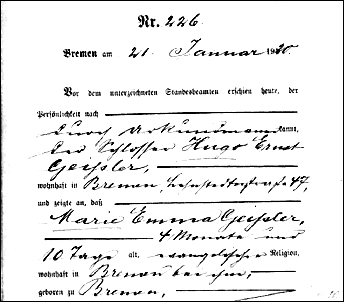 Nr. 226.
Bremen am 21. Januar 1920.
Vor dem unterzeichneten Standesbeamten erschien heute, der
Persönlichkeit nach
durch kannt,
der Schlosser Hugo Ernst
Geißler,
wohnhaft in Bremen, 47,
und zeigte an, daß
Marie Emma Geißler,
4 Monate und
10 Tage alt, evangelischer Religion,
wohnhaft in Bremen bei ihm,
geboren zu Bremen,